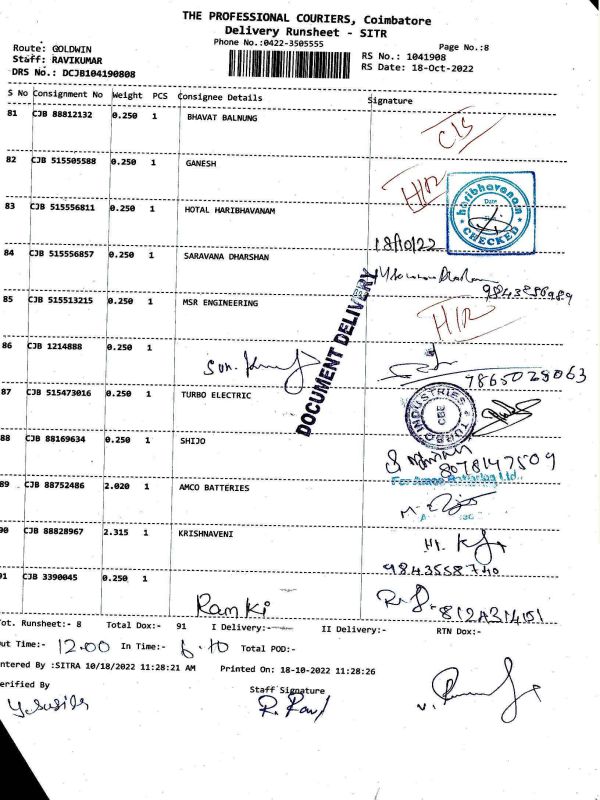 THE PROFESSIONAL COURIERS, Coimbatore
Delivery Runsheet - SITR
Phone No.:0422-3505555
Page No.:8
Route: GOLDWIN
Staff: RAVIKUMAR
DRS No.: DCJB104190808
RS No.: 1041908
RS Date: 18-Oct-2022
S No Consignment No Weight PCS Consignee Details Signature
81 CJB 88812132 0.250 1 BHAVAT BALNUNG
82 CJB 515505588 0.250 1 GANESH
H/R
83 CJB 515556811 0.250 1 HOTAL HARIBHAVANAM
haribhavanam
Date
CHECKED
18/10/22
84 CJB 515556857 0.250 1 SARAVANA DHARSHAN
DOCUMENT DELIVERY
85 CJB 515513215 0.250 1 MSR ENGINEERING
H/R
86 CJB 1214888 0.250 1
7865028063
87 CJB 515473016 0.250 1 TURBO ELECTRIC
TURBO INDUSTRIES
CBE
88 CJB 88169634 0.250 1 SHIJO
8078147509
For Amco Batteries Ltd.,
89 CJB 88752486 2.020 1 AMCO BATTERIES
90 CJB 88828967 2.315 1 KRISHNAVENI
9843558740
91 CJB 3390045 0.250 1
Ramki
Tot. Runsheet:- 8 Total Dox:- 91 I Delivery:- II Delivery:- RTN Dox:-
Out Time:- 12.00 In Time:- 6.10 Total POD:-
Entered By :SITRA 10/18/2022 11:28:21 AM Printed On: 18-10-2022 11:28:26
Verified By
Staff Signature